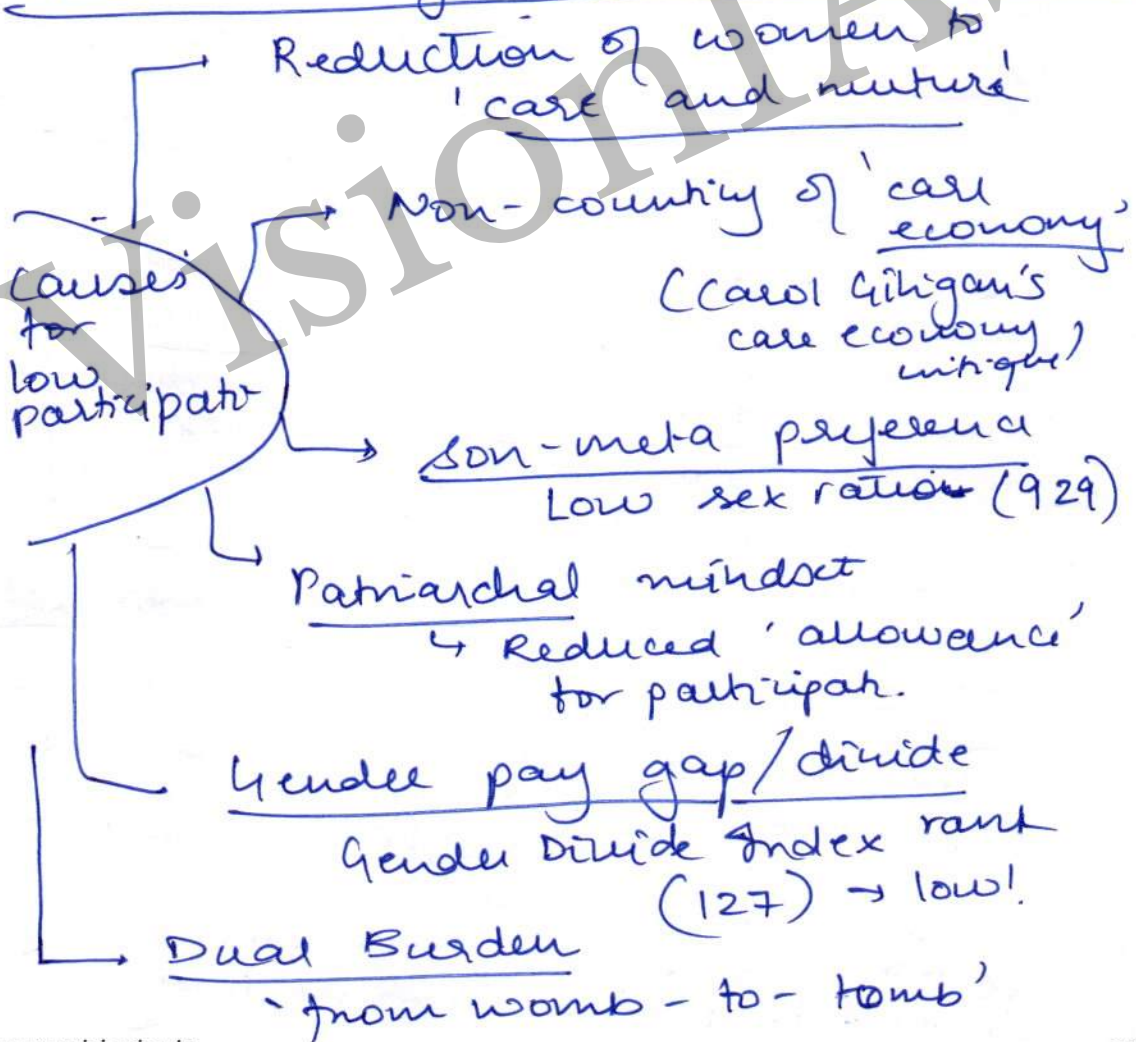 Reduction of women to
'care and nuture'
Non-counting of 'care
economy'
(Carol Giligan's
care economy
critique)
Causes
for
low
participatn
Son-meta preference
Low sex ratio (929)
Patriarchal mindset
↳ Reduced 'allowance'
for participatn.
Gender pay gap/divide
Gender Divide Index rank
(127) → low!
Dual Burden
'from womb-to-tomb'
VisionIA